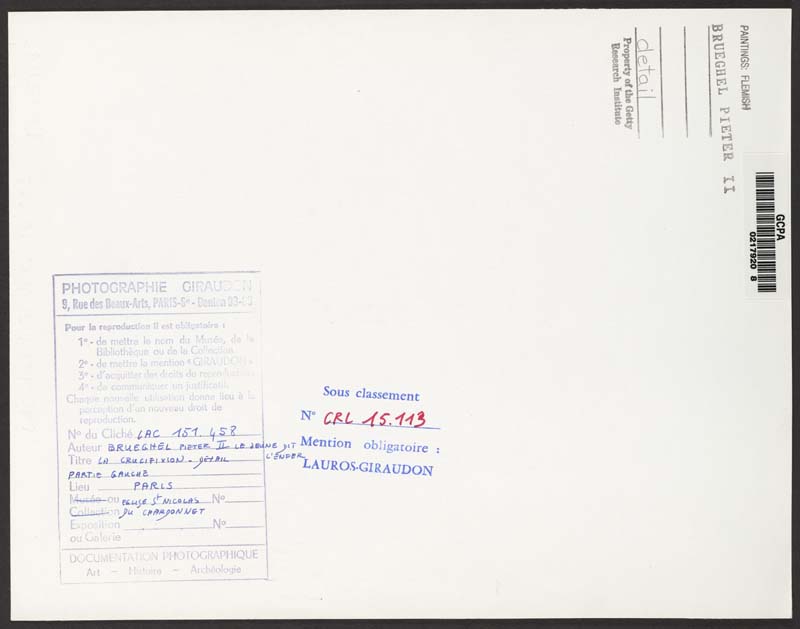 PAINTINGS: FLEMISH
BRUEGHEL PIETER II
detail
Property of the Getty
Research Institute
GCPA
0217920 8
PHOTOGRAPHIE GIRAUDON
9, Rue des Beaux-Arts, PARIS-6e - Danton 93-83
Pour la reproduction il est obligatoire :
1º - de mettre le nom du Musée, de la
Bibliothèque ou de la Collection
2º - de mettre la mention « GIRAUDON »
3º - d'acquitter des droits de reproduction
4º - de communiquer un justificatif.
Chaque nouvelle utilisation donne lieu à la
perception d'un nouveau droit de
reproduction.
Nº du Cliché LAC 151.458
Auteur BRUEGHEL PIETER II LE JEUNE DIT
L'ENFER
Titre LA CRUCIFIXION - DÉTAIL
PARTIE GAUCHE
Lieu PARIS
Musée ou EGLISE St NICOLAS Nº
Collection DU CHARDONNET
Exposition Nº
ou Galerie
DOCUMENTATION PHOTOGRAPHIQUE
Art - Histoire - Archéologie
Sous classement
Nº CRL 15.113
Mention obligatoire :
LAUROS-GIRAUDON